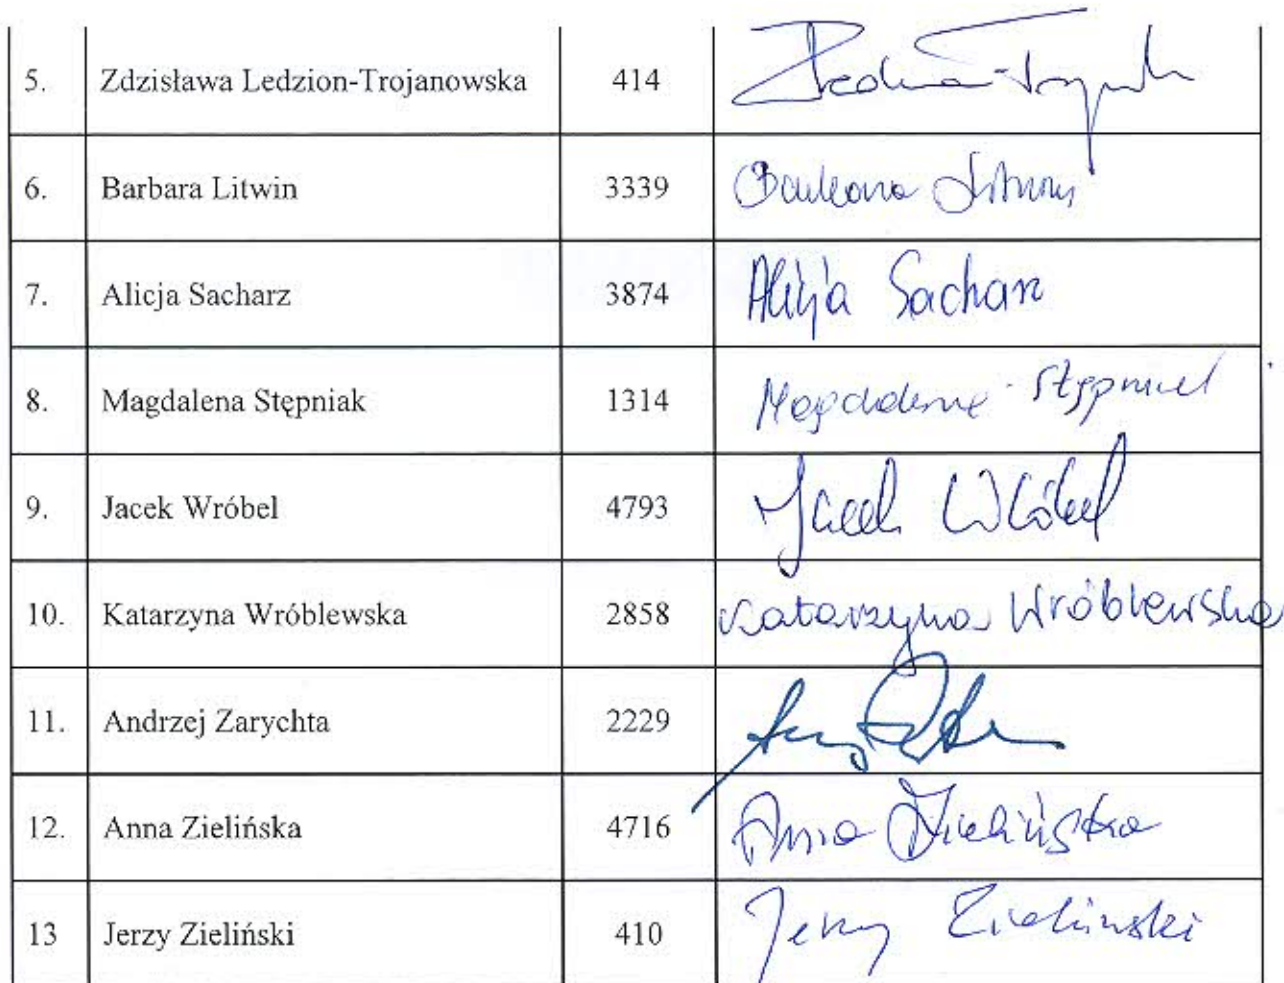 5. Zdzisława Ledzion-Trojanowska 414
6. Barbara Litwin 3339 Barbara Litwin
7. Alicja Sacharz 3874 Alicja Sacharz
8. Magdalena Stępniak 1314 Magdalena Stępniak
9. Jacek Wróbel 4793 Jacek Wróbel
10. Katarzyna Wróblewska 2858 Katarzyna Wróblewska
11. Andrzej Zarychta 2229
12. Anna Zielińska 4716 Anna Zielińska
13 Jerzy Zieliński 410 Jerzy Zieliński